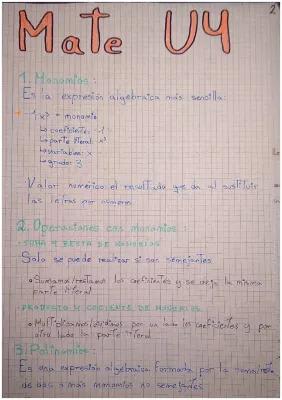 2
Mate U4
1. Monomios:
Es la expresión algebraica más sencilla:
-1x³ = monomio
↳ coeficiente: -1
↳ parte literal: x³
↳ variables: x
↳ grado: 3
Valor numérico: el resultado que da al sustituir
las letras por números
2. Operaciones con monomios:
· SUMA Y RESTA DE MONOMIOS
Solo se puede realizar si son semejantes
• Sumamos/restamos los coeficientes y se deja la misma
parte literal
· PRODUCTO Y COCIENTE DE MONOMIOS
• Multiplicamos/dividimos por un lado los coeficientes y por
otro lado la parte literal
3. Polinomios:
Es una expresión algebraica formada por la
de dos o más monomios no semejantes